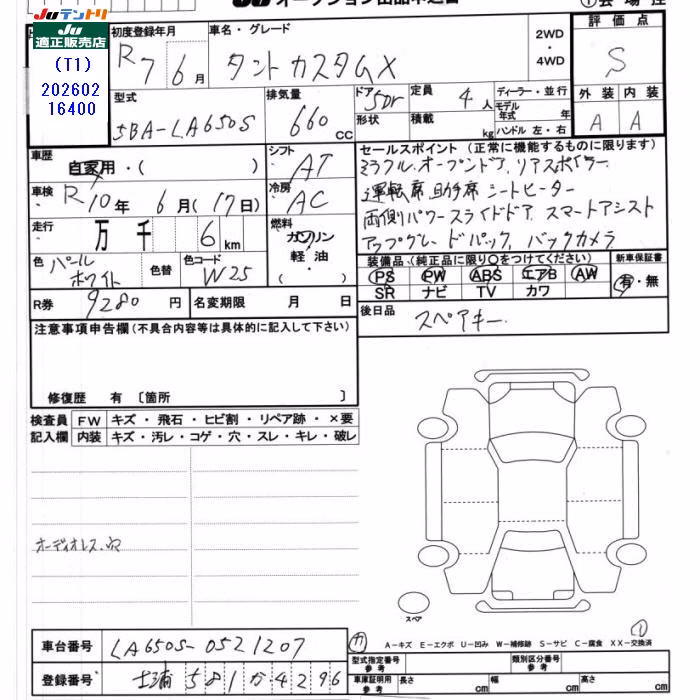 JUテントリ
JU オークション出品申込書
①会場控
JU
適正販売店
(T1)
202602
16400
初度登録年月
R7 6月
車名・グレード
タントカスタムX
2WD
・
4WD
評価点
S
外装 内装
A A
型式
5BA-LA650S
排気量
660 CC
ドア 5Dr
形状
定員 4人
積載 kg
ディーラー・並行
モデル年式 年
ハンドル 左・右
車歴
自家用・( )
シフト
AT
車検
R10年 6月(17日)
冷房
AC
走行
万 千 6 km
燃料
ガソリン
軽油
( ・ )
色
パールホワイト
色替
色コード
W25
R券 9280 円
名変期限 月 日
セールスポイント (正常に機能するものに限ります)
ミラクルオープンドア, リアスポイラー,
運転席助手席シートヒーター
両側パワースライドドア, スマートアシスト
アップグレードパック, バックカメラ
装備品 (純正品に限り○をつけてください)
新車保証書
PS PW ABS エアB AW
SR ナビ TV カワ
有・無
後日品
スペアキー.
注意事項申告欄(不具合内容等は具体的に記入して下さい)
修復歴 有 〔箇所 〕
検査員
記入欄
FW キズ・飛石・ヒビ割・リペア跡・×要
内装 キズ・汚レ・コゲ・穴・スレ・キレ・破レ
オーディオレス.穴
スペア
A−キズ E−エクボ U−凹み W−補修跡 S−サビ C−腐食 XX−交換済
車台番号 LA650S-0521207
登録番号 土浦 581 か 4296
型式指定番号
参考
類別区分番号
参考
車庫証明用
参考
長さ cm
幅 cm
高さ cm